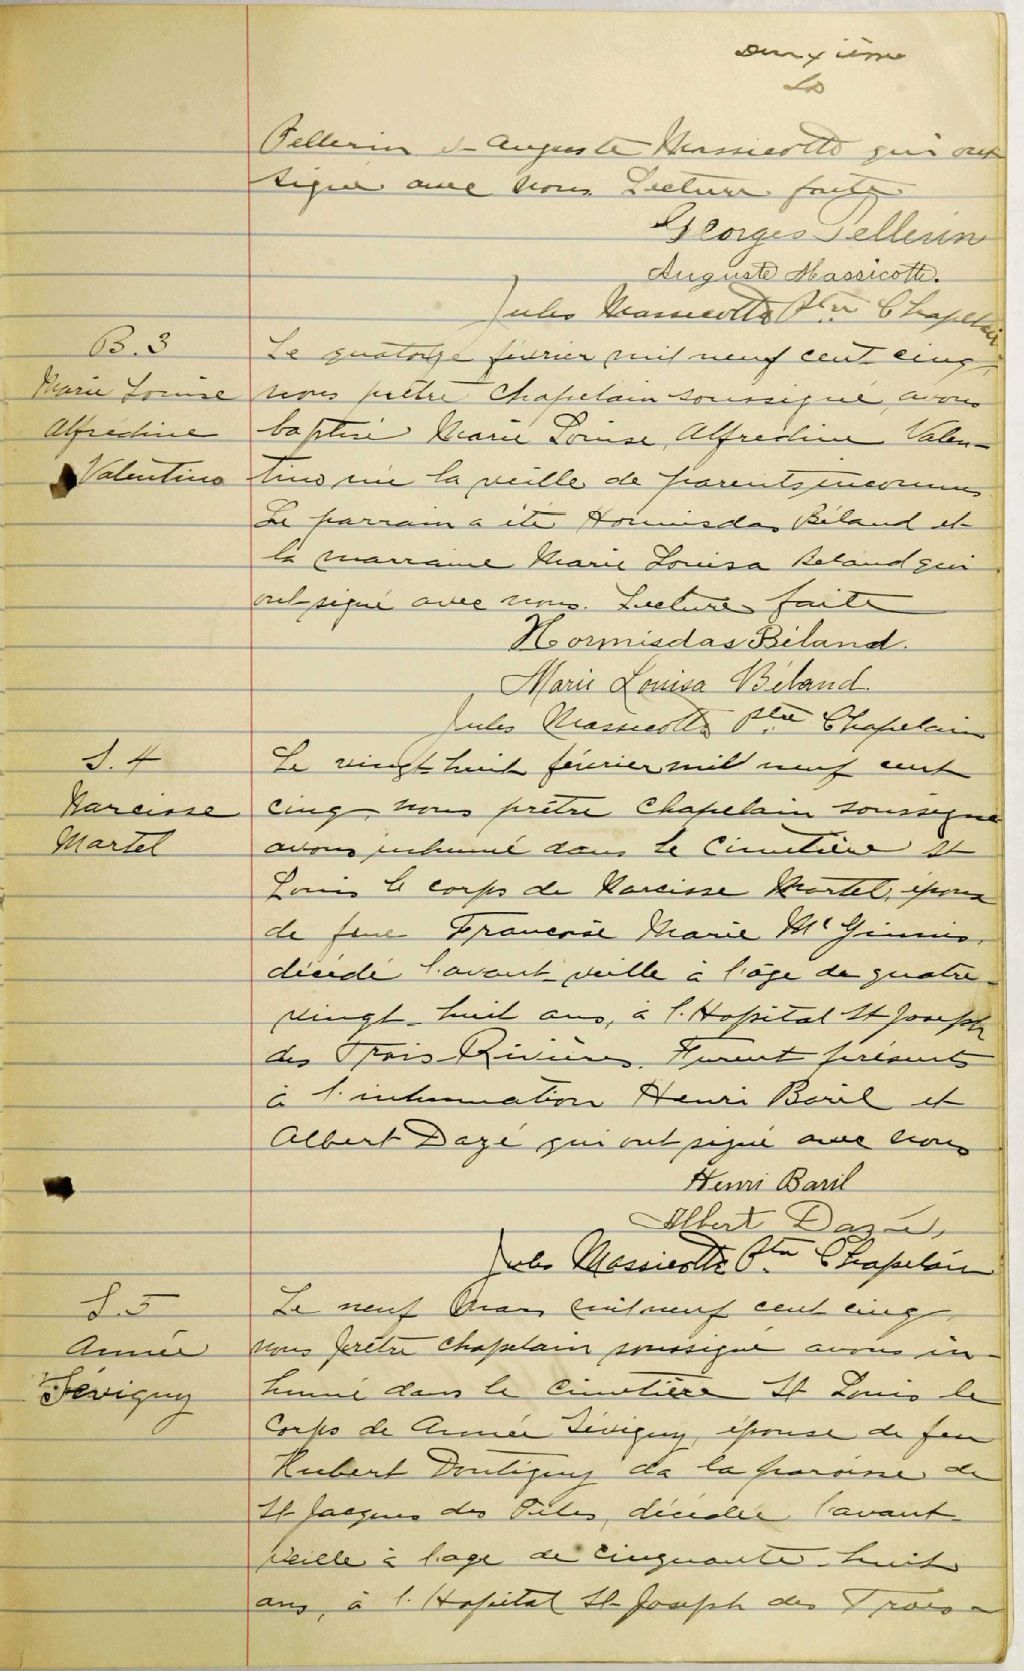 Deuxième
Pellerin & Auguste Massicotte qui ont
signé avec nous. Lecture faite
Georges Pellerin
Auguste Massicotte.
Jules Massicotte Ptre Chapelain
B. 3
Le quatorze février mil neuf cent cinq,
Marie Louise
nous prêtre chapelain soussigné, avons
Alfredine
baptisé Marie Louise, Alfredine Valen-
Valentino
tino née la veille de parents inconnus
Le parrain a été Hormisdas Béland et
la marraine Marie Louisa Béland qui
ont signé avec nous. Lecture faite
Hormisdas Béland.
Marie Louisa Béland.
Jules Massicotte Ptre Chapelain
S. 4
Le vingt huit février mil neuf cent
Narcisse
cinq, nous prêtre chapelain soussigné
Martel
avons inhumé dans le Cimetière St
Louis le corps de Narcisse Martel, époux
de feue Françoise Marie McGinnis,
décédé l'avant-veille à l'âge de quatre-
vingt-huit ans, à l'Hopital St Joseph
des Trois Rivières. Furent présents
à l'inhumation Henri Baril et
Albert Dazé qui ont signé avec nous
Henri Baril
Albert Dazé,
Jules Massicotte Ptre Chapelain
S. 5
Le neuf Mars mil neuf cent cinq,
Année
nous prêtre chapelain soussigné avons in-
Sévigny
humé dans le cimetière St Louis le
corps de Année Sévigny, épouse de feu
Hubert Doutigny de la paroisse de
St Jacques des Piles, décédée l'avant-
veille à l'age de cinquante-huit
ans, à l'Hopital St Joseph des Trois-